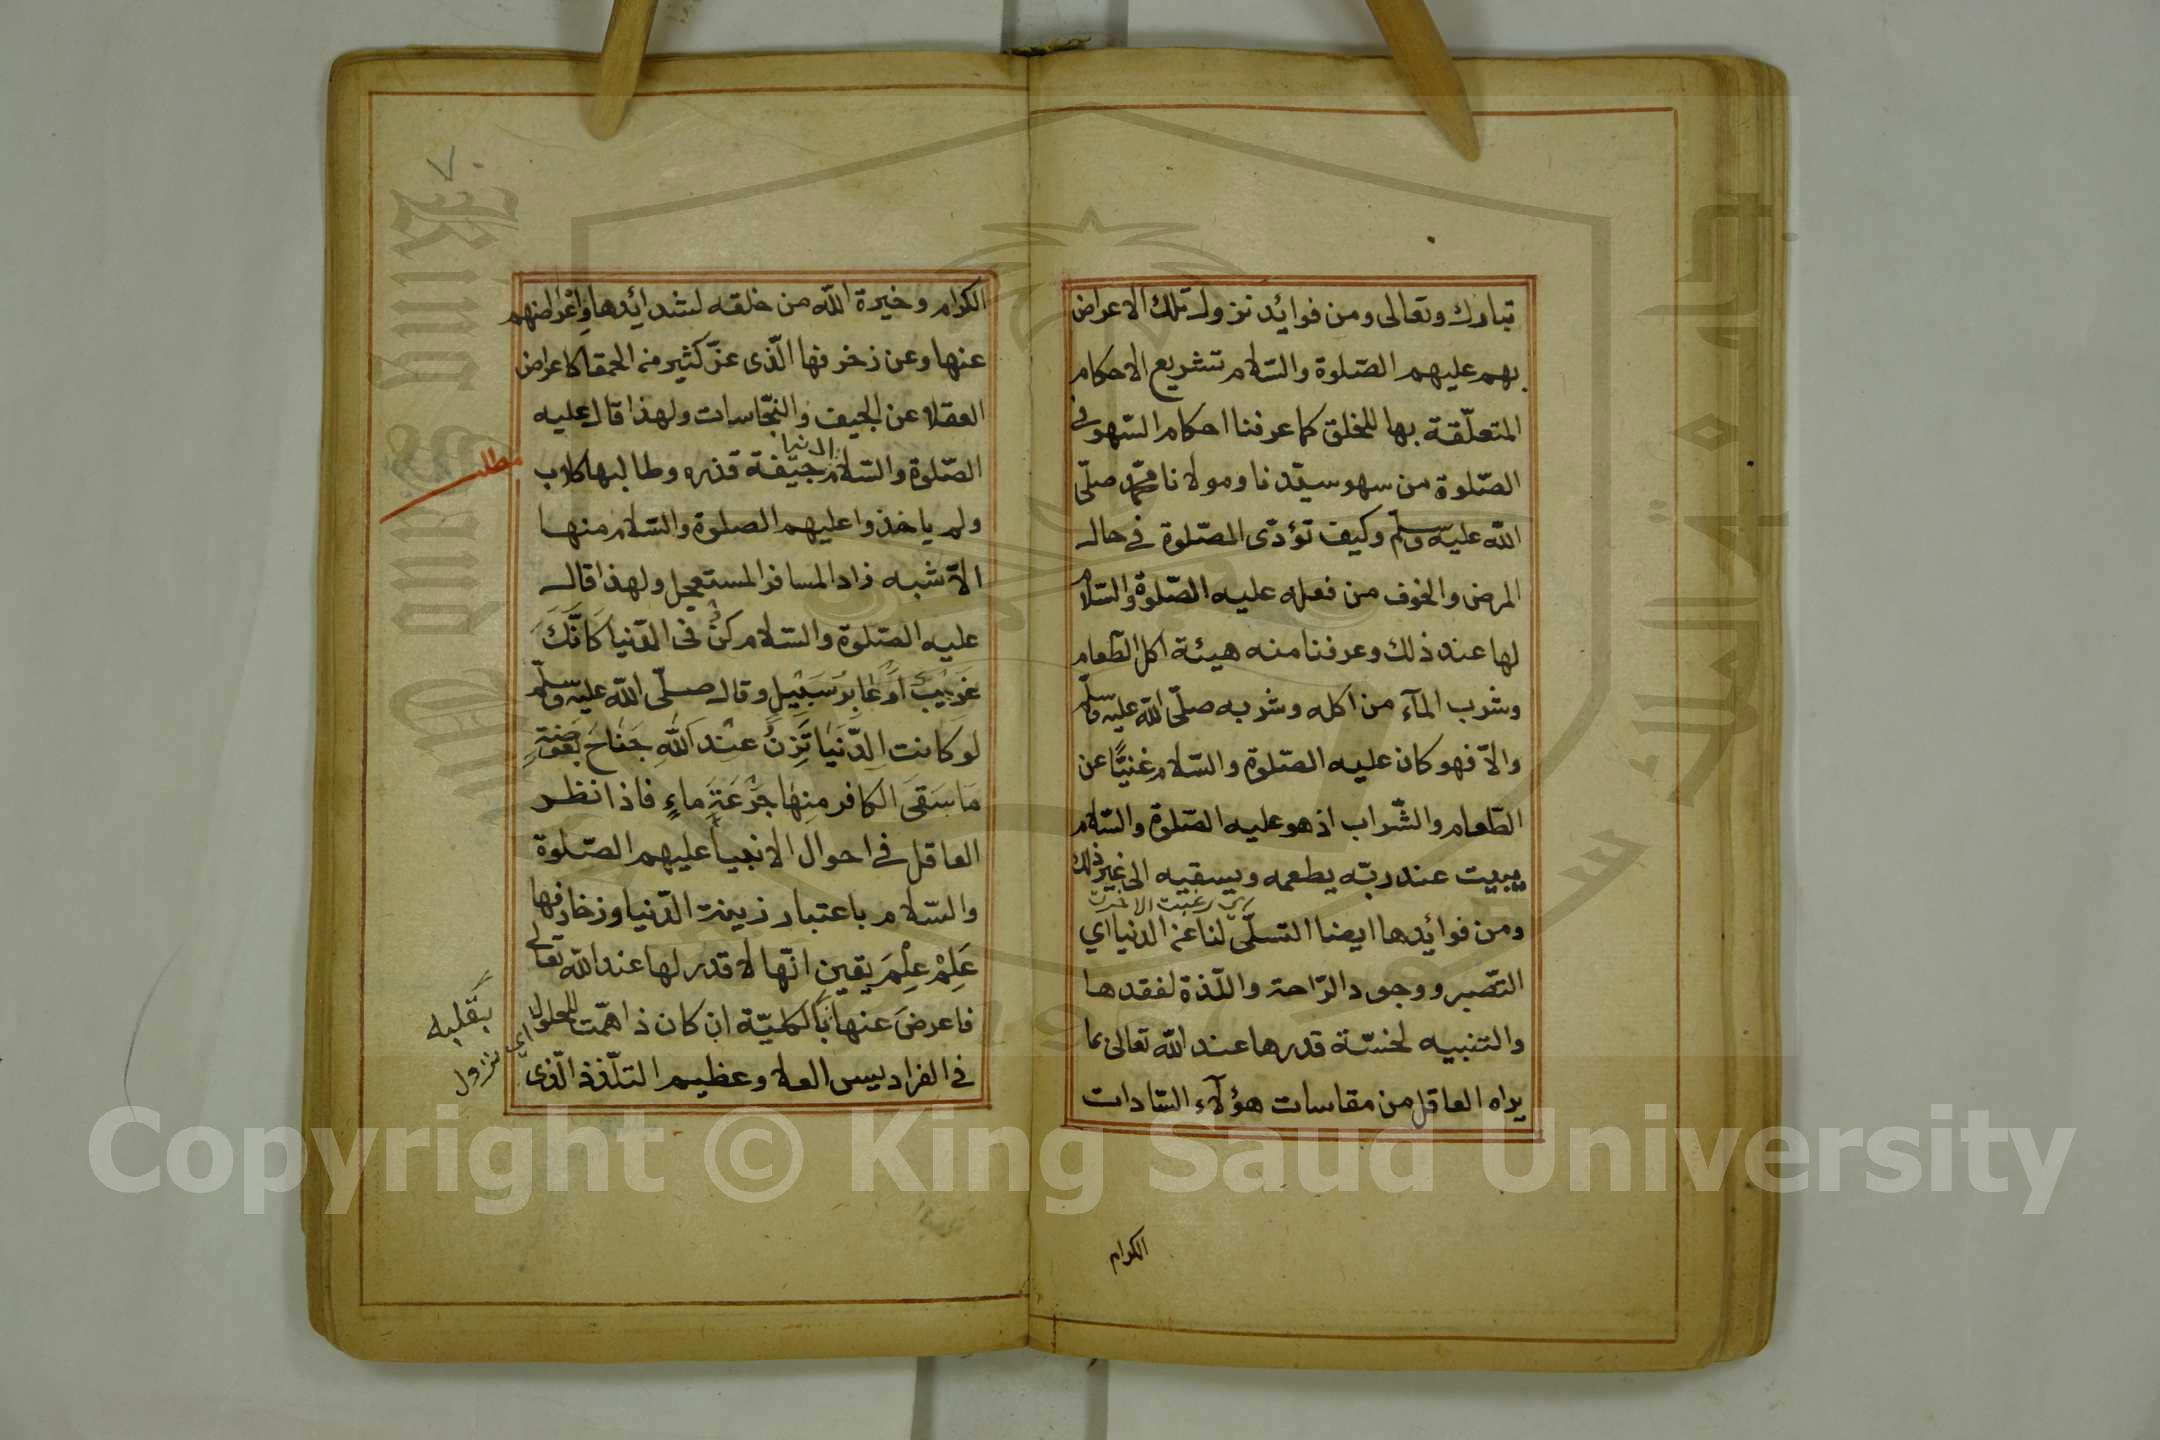 تبارك وتعالى ومن فوائد نزول تلك الاعراض
بهم عليهم الصّلوة والسّلام تشريع الاحكام
المتعلّقة بها للخلق كما عرفنا احكام السّهو في
الصّلوة من سهو سيّدنا ومولانا محمّد صلّى
اللّه عليه وسلّم وكيف تؤدّى الصّلوة في حال
المرض والخوف من فعله عليه الصّلوة والسّلام
لها عند ذلك وعرفنا منه هيئة اكل الطّعام
وشرب المآء من اكله وشربه صلّى اللّه عليه وسلّم
والاّ فهو كان عليه الصّلوة والسّلام غنيًّا عن
الطّعام والشّراب اذ هو عليه الصّلوة والسّلام
يبيت عند ربّه يطعمه ويسقيه الى غير ذلك
ومن فوائدها ايضا التسلّى لنا عن الدنيا اي
التّصبر ووجود الرّاحة واللّذة لفقدها
والتنبيه لخسّة قدرها عند اللّه تعالى بما
يراه العاقل من مقاسات هؤلآء السّادات
الكرام
٧
الكرام وخيرة اللّه من خلقه لشدائدها واِعْراضهم
عنها وعن زخرفها الّذى عزّ كثير منه الحمقا كاعراض
العقلا عن الجيف والنّجاسات ولهذا قال عليه
الدنيا
الصّلوة والسّلام جيّفة قذره وطالبها كلاب
مطلب
ولم ياخذوا عليهم الصلوة والسّلام منها
الاّ شبه زاد المسافر المستعجل ولهذا قال
عليه الصّلوة والسّلام كنْ في الدّنيا كَاَنَّكَ
غَرِيْبٌ اَوْ عَابِرُ سَبِيْلٍ وقال صلّى اللّه عليه وسلّم
لو كانت الدّنيا تَزِنُ عِنْدَ اللّهِ جَنَاحَ بَعُوْضَةٍ
مَا سَقَى الكافر مِنها جَرْعَةَ ماءٍ فاذا نظر
العاقل في احوال الانبيآ عليهم الصّلوة
والسّلام باعتبار زينة الدّنيا وزخارفها
عَلِمَ عِلْمَ يقين انّها لا قدر لها عند اللّه تعالى
فاعرضَ عنها بالكليّة ان كان ذا همّت للحلول
بقلبه
اى نزول
في الفراديس العلا وعظيم التلّذذ الّذى
Copyright © King Saud University